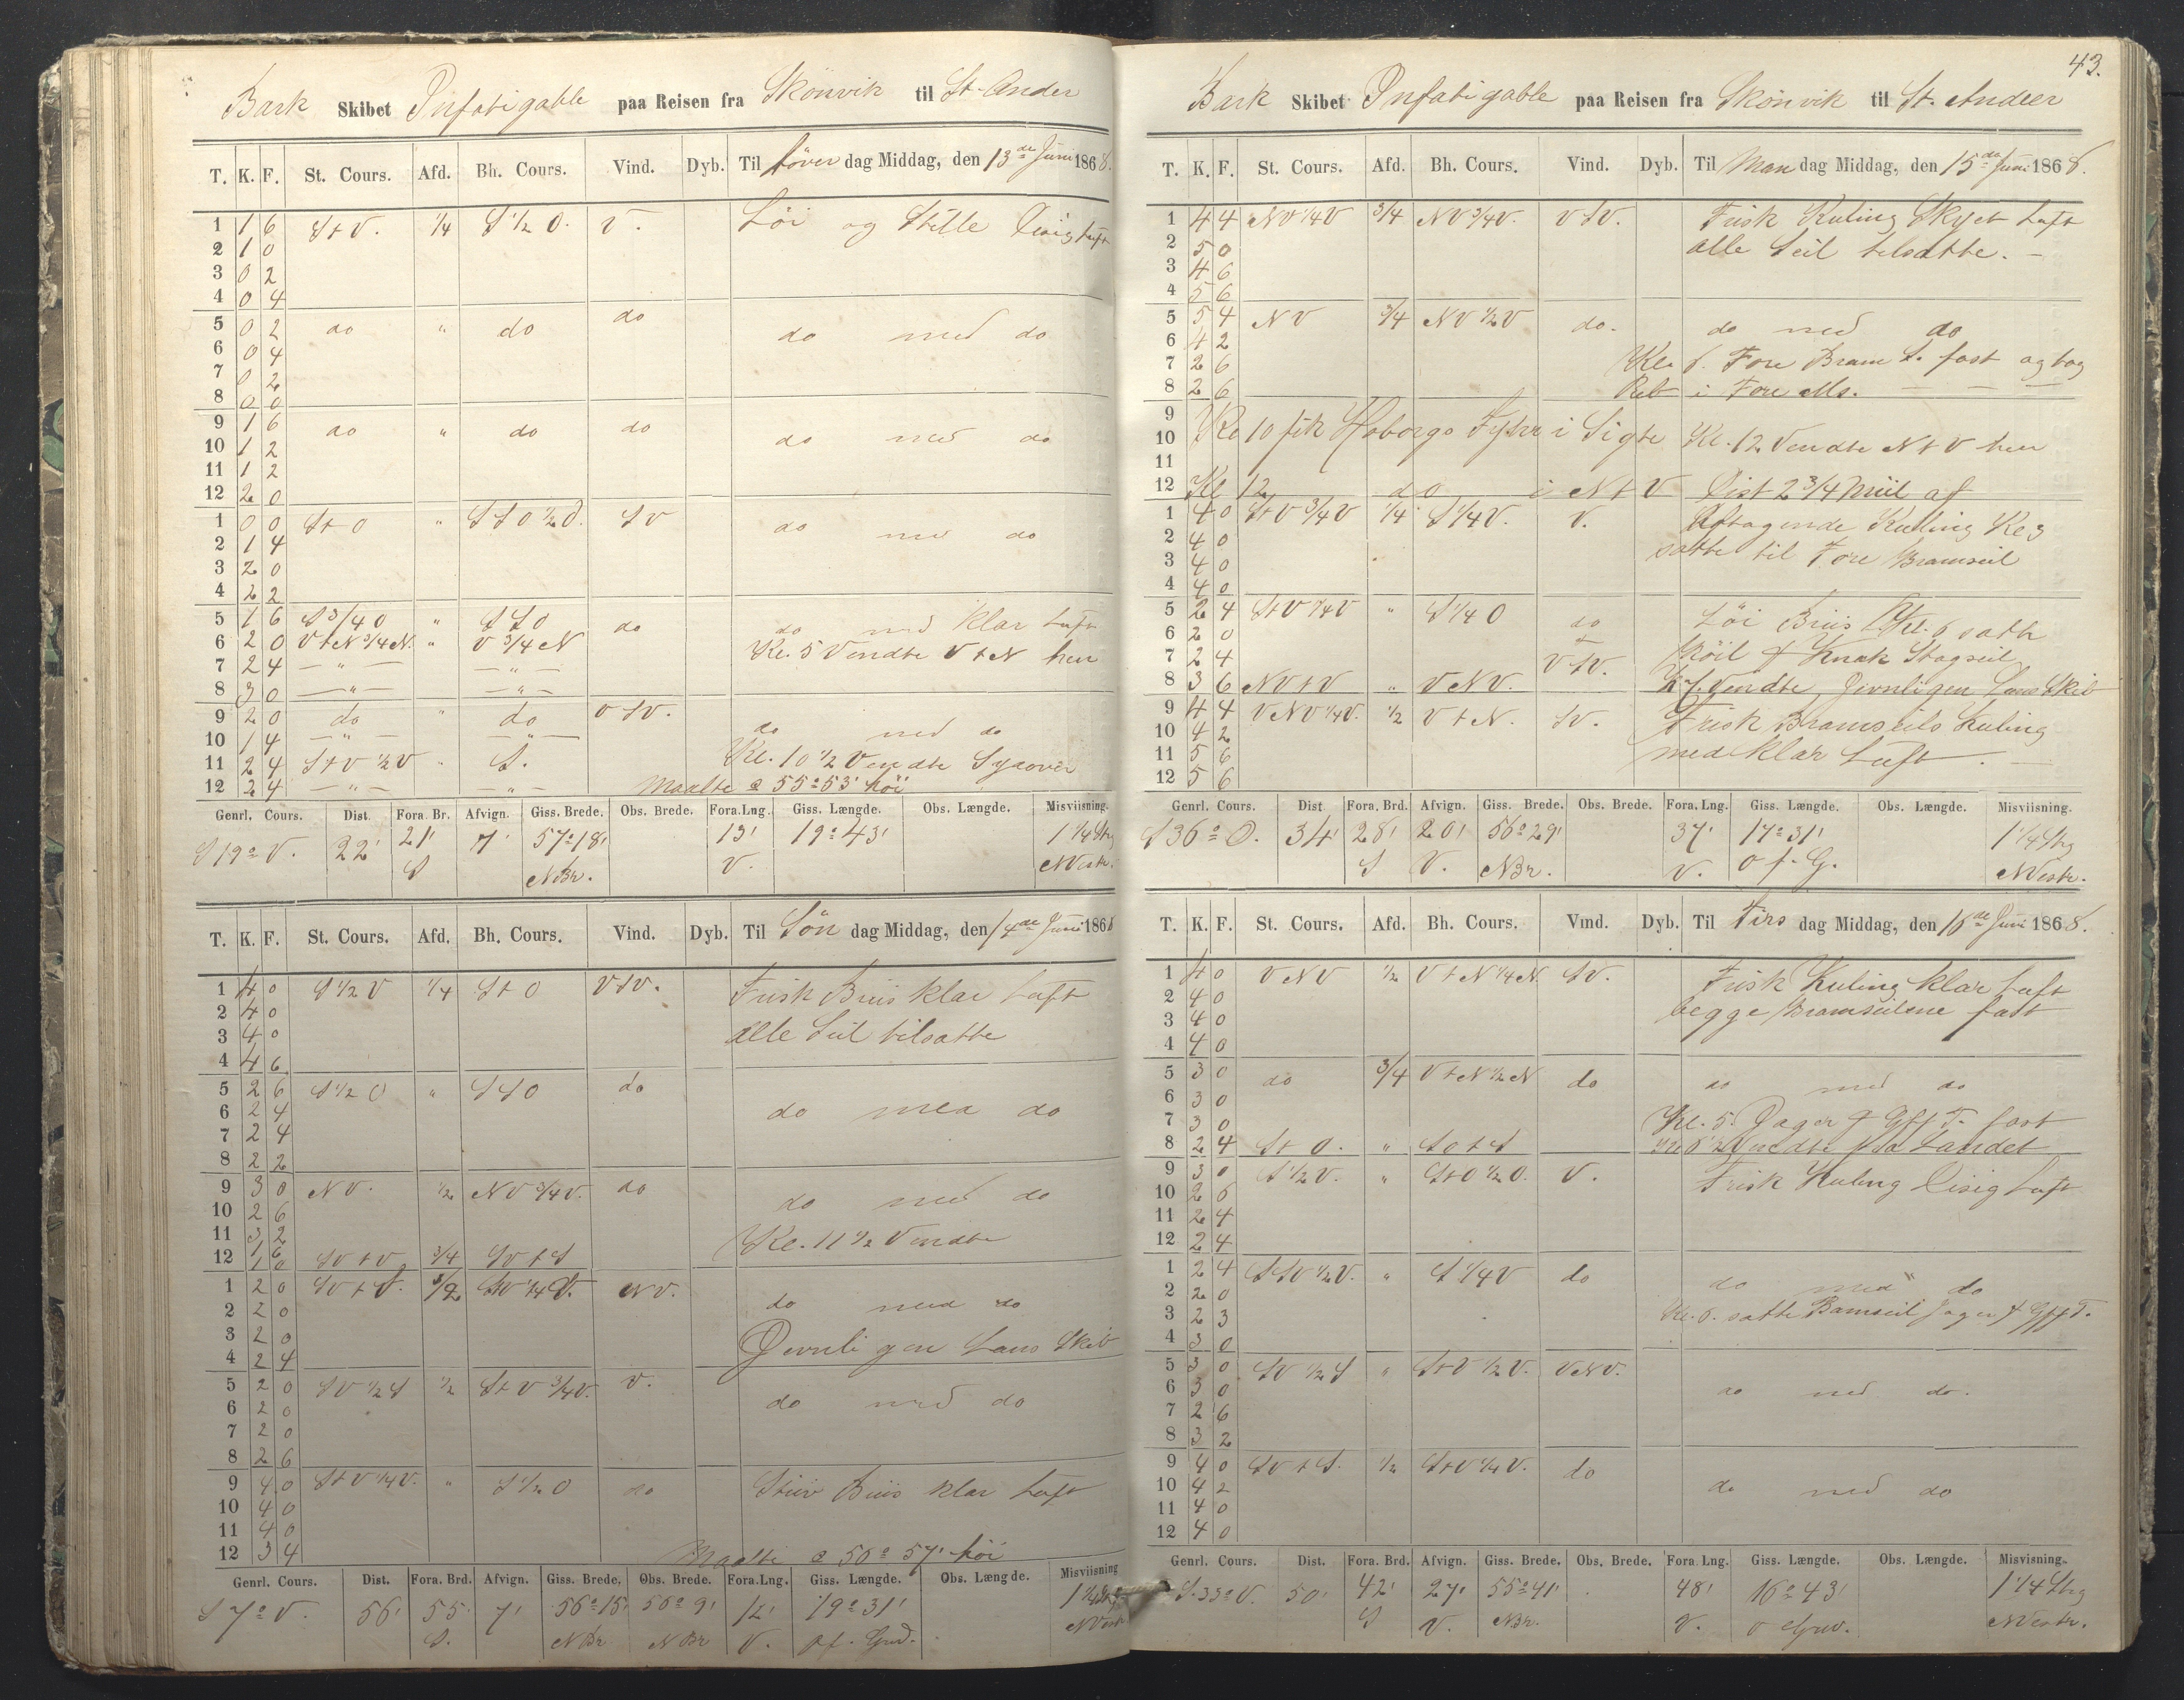 Bark Skibet Infatigable paa Reisen fra Skönvik til St. Ander
T. K. F. St. Cours. Afd. Bh. Cours. Vind. Dyb. Til Löver dag Middag, den 13de Juni 1868.
1 1 6 StV. 1/4 S 1/2 O. V. Löi og Stille Disig Luft
2 1 0
3 0 2
4 0 4
5 0 2 do " do do do med do
6 0 4
7 0 2
8 0 0
9 1 6 do " do do do med do
10 1 2
11 1 2
12 2 0
1 0 0 StO " SSO 1/2 O. SV do med do
2 1 4
3 2 0
4 2 2
5 1 6 S 3/4 O " SSO do do med klar Luft
6 2 0 VtN 3/4 N. " V 3/4 N Kl. 5 Vendte VtN hen
7 2 4 — " — — " —
8 3 0 — " — — " —
9 2 0 do " do VSV. do med do
10 1 4 — " — — " —
11 2 4 StV 1/2 V " S. Kl. 10 1/2 Vendte Syover
12 2 4 — " — — " — Maalte 55° 53' höi
Genrl. Cours. Dist. Fora. Br. Afvign. Giss. Brede. Obs. Brede. Fora. Lng. Giss. Længde. Obs. Længde. Misviisning.
S 19° V. 22' 21' 7' 57° 18' 13' 19° 43' 1 1/4 Strg
S NBr. V. NVestr.
T. K. F. St. Cours. Afd. Bh. Cours. Vind. Dyb. Til Sön dag Middag, den 14de Juni 1868
1 4 0 S 1/2 V 1/4 StO VSV. Frisk Briis klar Luft
2 4 0
3 4 0 alle Seil tilsatte
4 4 6
5 2 6 S 1/2 O " SSO do do med do
6 2 4
7 2 4
8 2 2
9 3 0 NV. 1/2 NV 3/4 V. do do med do
10 2 6
11 3 2 Kl. 11 1/2 Vendte
12 1 6 1 0 SVtV 3/4 SVtS
1 2 0 SVtS. 1/2 SV 1/4 V. NV. do med do
2 2 0
3 2 0 Jevnligen Lans Skib
4 2 4
5 2 0 SV 1/2 S 1/2 StV 3/4 V. V. do med do
6 2 0
7 2 0
8 2 6
9 4 0 StV 1/4 V. " S 1/2 O do Stiiv Briis klar Luft
10 4 0
11 4 0
12 3 4 Maalte 56° 57' höi
Genrl. Cours. Dist. Fora. Brd. Afvign. Giss. Brede. Obs. Brede. Fora. Lng. Giss. Længde. Obs. Længde. Misviisning
S 7° V. 56' 55' 7' 56° 15' 56° 9' 12' 19° 31' 1 1/4 Strg
S. NBr NBr V. Ø f. Grw. NVestr
43.
Bark Skibet Infatigable paa Reisen fra Skönvik til St. Andeer
T. K. F. St. Cours. Afd. Bh. Cours. Vind. Dyb. Til Man dag Middag, den 15de Juni 1868.
1 4 4 NV 1/4 V 3/4 NV 3/4 V. VSV. Frisk Kuling Skyet Luft
2 5 0 alle Seil tilsatte. —
3 4 6
4 5 6
5 5 4 NV 3/4 NV 1/2 V do. do med do
6 4 2
7 2 6 Kl. 6. Fore Bram S. fast og tog
8 2 6 Reb i Fore Ms. — — —
9
10 Kl 10 fik Hoborgs Fyhr i Sigte Kl. 12 Vendte NtV hen
11
12 Kl 12 do i NtV Dist 2 3/4 Miil af
1 4 0 StV 3/4 V 1/4 S 1/4 V. V. Aftagende Kuling Kl 3
2 4 0 satte til Fore Bramseil
3 4 0
4 4 0
5 2 4 StV 1/4 V " S 1/4 O do Löi Briis Kl. 6 satte
6 2 0
7 2 4 VSV. Röil & Knak Stagseil
8 3 6 NVtV " VNV. Kl 7. Vendte, Jevnligen Lans Skib
9 4 4 VNV 1/4 V. 1/2 VtN. SV. Frisk Bramseils Kuling
10 4 2
11 5 6 med klar Luft. —
12 5 6
Genrl. Cours. Dist Fora. Brd. Afvign. Giss. Brede. Obs. Brede. Fora. Lng. Giss. Længde. Obs. Længde. Misviisning.
S 36° O. 34' 28' 20' 56° 29' 37' 17° 31' 1 1/4 Strg
S V. NBr. V. O f. G. NVestr.
T. K. F. St. Cours. Afd. Bh. Cours. Vind. Dyb. Til Tirs dag Middag, den 16de Juni 1868.
1 4 0 VNV 1/2 VtN 1/4 N. SV. Frisk Kuling klar Luft
2 4 0
3 4 0 begge Bramseilene fast
4 4 0
5 3 0 do 3/4 VtN 1/2 N do do med do
6 3 0
7 3 0 Kl. 5. Jager & Gff T. fast
8 2 4 StO. " SOtS Kl 6 1/2 Vendte fra Landet
9 3 0 S 1/2 V. " StO 1/2 O. V. Frisk Kuling Disig Luft
10 2 6
11 2 4
12 2 4
1 2 4 SSV 1/2 V. " S 1/4 V do do med do
2 2 0
3 2 3 Kl. 6. satte Bamseil Jager & Gff T.
4 3 0
5 3 0 SV 1/2 S " StV 1/2 V. VNV. do med do.
6 3 0
7 2 6
8 3 2
9 4 0 SVtS. 1/2 StV 1/4 V. do do med do
10 4 2
11 4 0
12 4 0
Genrl. Cours. Dist. Fora. Brd. Afvign. Giss. Brede. Obs. Brede. Fora. Lng. Giss. Længde. Obs. Længde. Misvisning.
S. 33° V. 50' 42' 27' 55° 41' 48' 16° 43' 1 1/4 Strg
S V. NBr. V. O Grw. NVestr.